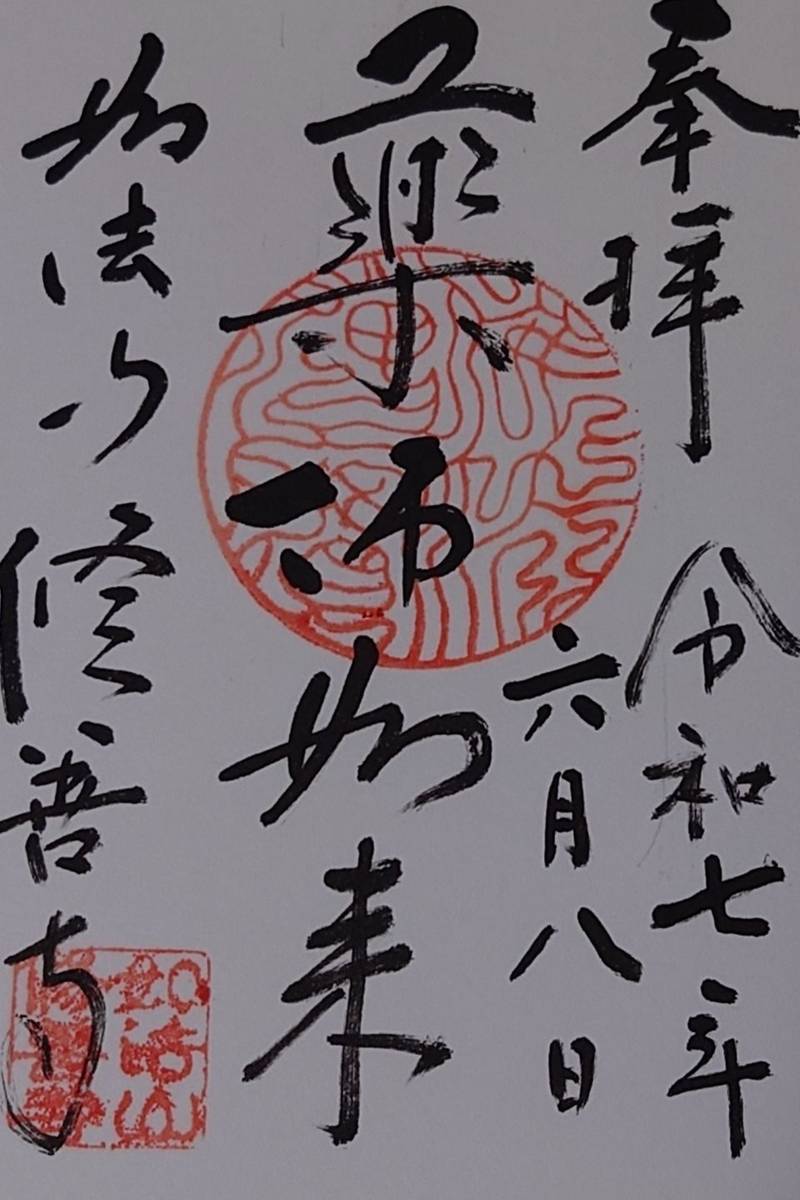 奉拝 令和七年
六月八日
薬師如来
如法山 修善寺
如法山